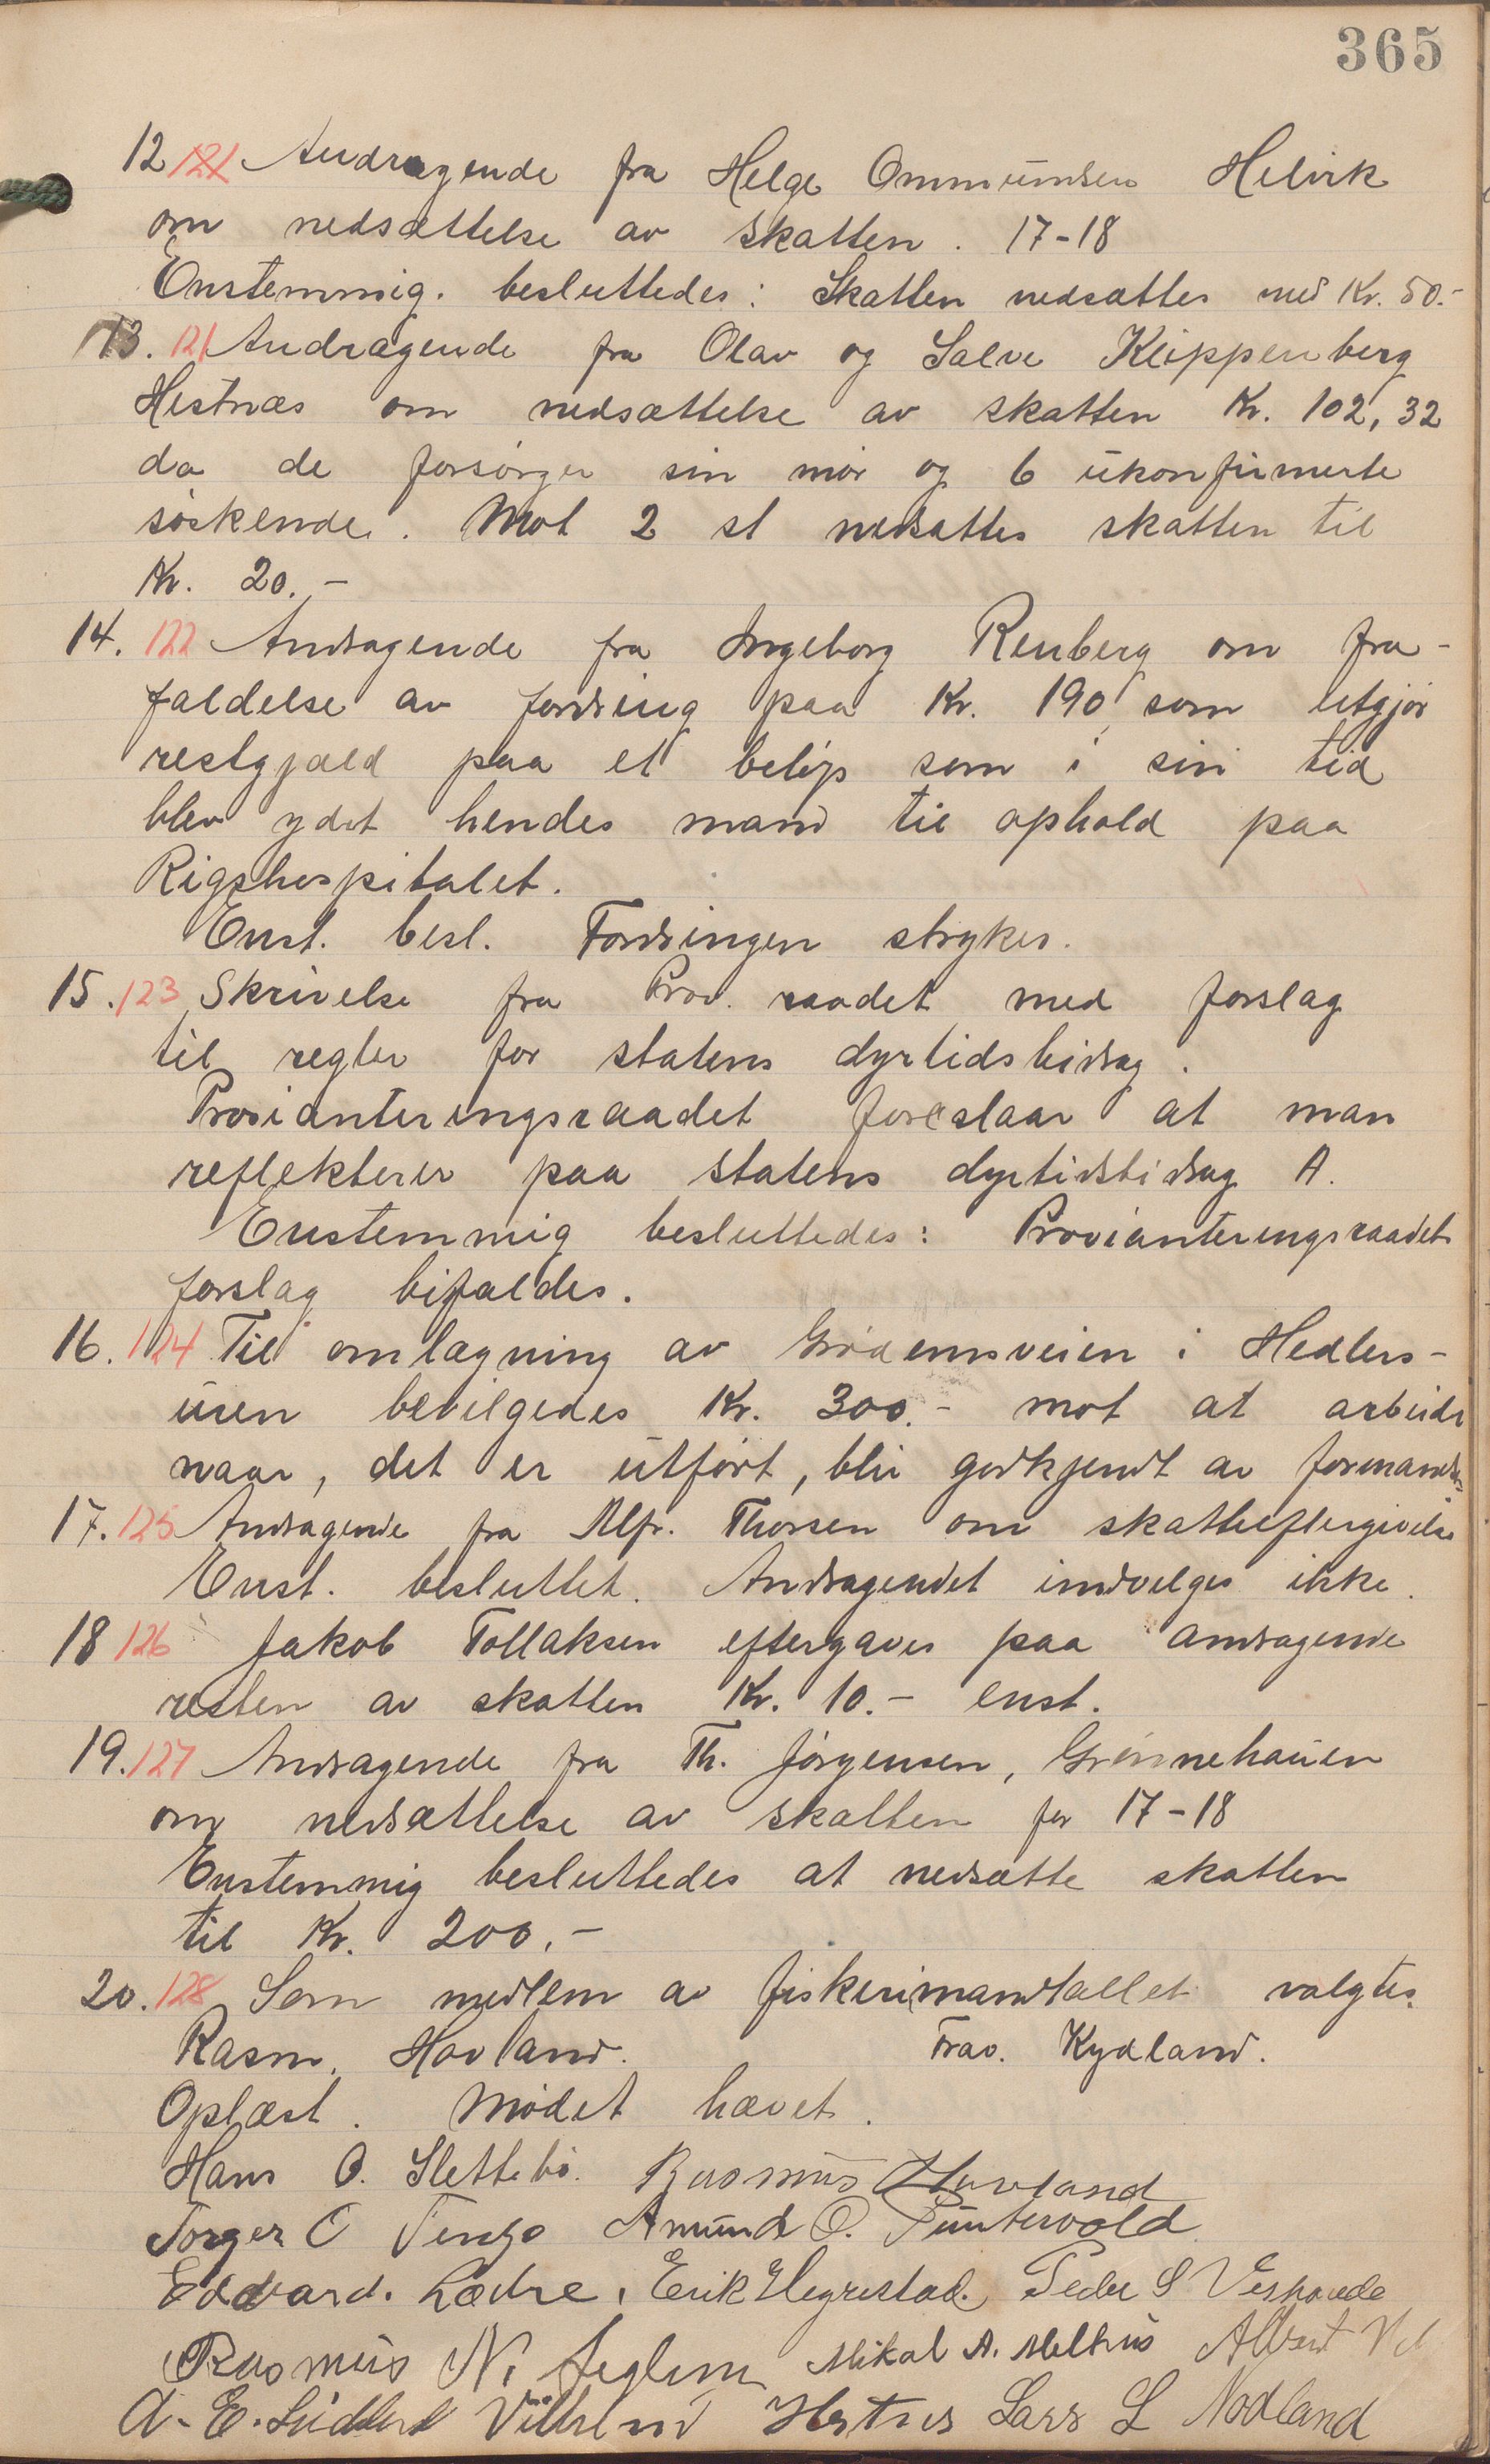 365
12 121 Andragende fra Helge Ommundsen Helvik
om nedsættelse av skatten. 17-18
Enstemmig. besluttedes: Skatten nedsættes med Kr. 50.-
13. 121 Andragende fra Olav og Salve Klippenberg
Hestnæs om nedsættelse av skatten Kr. 102,32
da de forsørger sin mor og 6 ukonfirmerte
søskende. Mot 2 st nedsattes skatten til
Kr. 20.-
14. 122 Andragende fra Ingeborg Renberg om fra-
faldelse av fordring paa Kr. 190 som utgjør
restgjæld paa et beløp som i sin tid
blev ydet hendes mand til ophold paa
Rigshospitalet.
Enst. besl. Fordringen strykes.
15. 123 Skrivelse fra Prov. raadet med forslag
til regler for statens dyrtidsbidrag.
Provianteringsraadet foreslaar at man
reflekterer paa statens dyrtidsbidrag A.
Enstemmig besluttedes: Provianteringsraadets
forslag bifaldes.
16. 124 Til omlægning av Grødemsveien i Hedlers-
uren bevilgedes Kr. 300.- mot at arbeidet
naar, det er utført, blir godkjendt av formandsk.
17. 125 Andragende fra Alfr. Thorsen om skatteeftergivelse
Enst. besluttet. Andragendet indvilges ikke.
18 126 Jakob Tollaksen eftergaves paa andragende
resten av skatten Kr. 10.- enst.
19. 127 Andragende fra Th. Jørgensen, Grønnehauen
om nedsættelse av skatten for 17-18
Enstemmig besluttedes at nedsætte skatten
til Kr. 200.-
20. 128 Som medlem av fiskerimandtallet valgtes
Rasm. Havland. Frav. Kydland.
Oplæst. Mødet hævet.
Hans O. Slettebø. Rasmus Havland
Torger O Tengs Amund O. Puntervold
Edvard. Lædre. Erik Hegrestad. Peder S Veshovde
Rasmus N. Seglem Mikal A. Melhus Albert
A. E. Vilhelm Hestnes Lars L Nodland